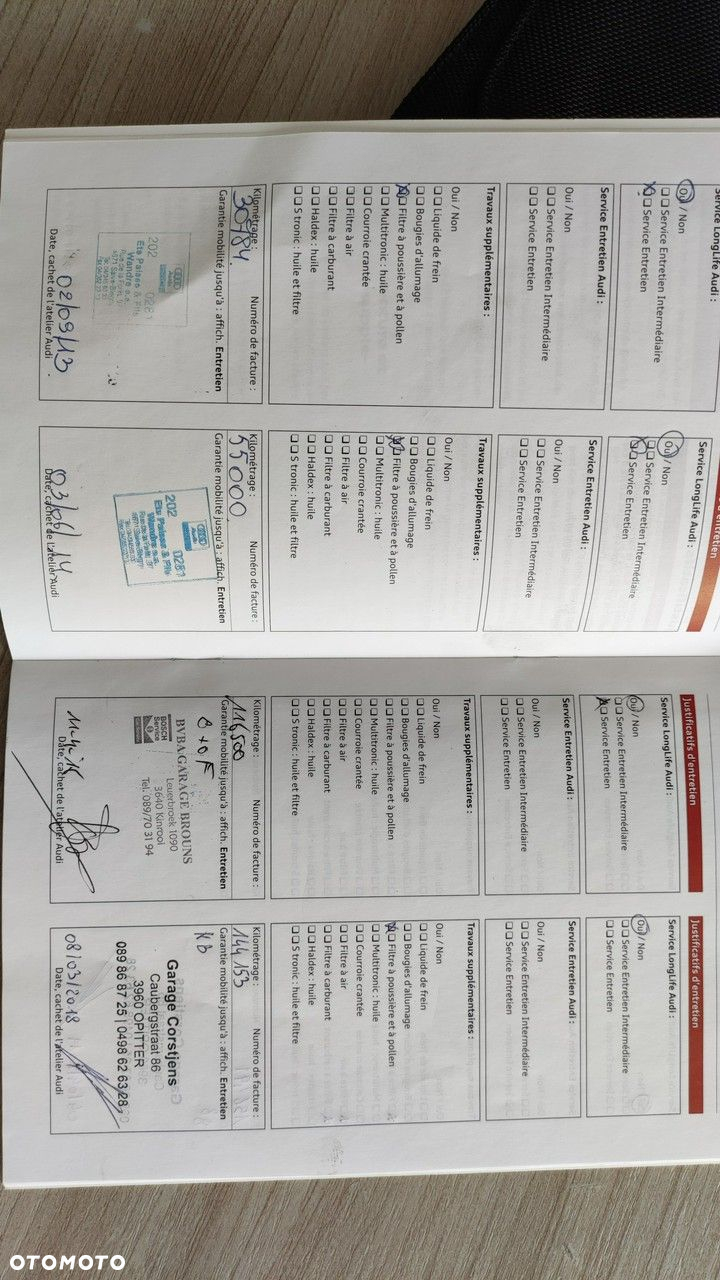 Service LongLife Audi :
Oui / Non
☐ ☐ Service Entretien Intermédiaire
☒ ☐ Service Entretien
Service Entretien Audi :
Oui / Non
☐ ☐ Service Entretien Intermédiaire
☐ ☐ Service Entretien
Travaux supplémentaires :
Oui / Non
☐ ☐ Liquide de frein
☐ ☐ Bougies d'allumage
☒ ☐ Filtre à poussière et à pollen
☐ ☐ Multitronic : huile
☐ ☐ Courroie crantée
☐ ☐ Filtre à air
☐ ☐ Filtre à carburant
☐ ☐ Haldex : huile
☐ ☐ S tronic : huile et filtre
Kilométrage : Numéro de facture :
30784
Garantie mobilité jusqu'à : affich. Entretien
202 0287
Ets Palsen & Fils
Wandre
02/09/13
Date, cachet de l'atelier Audi
entretien
Service LongLife Audi :
Oui / Non
☐ ☐ Service Entretien Intermédiaire
☒ ☐ Service Entretien
Service Entretien Audi :
Oui / Non
☐ ☐ Service Entretien Intermédiaire
☐ ☐ Service Entretien
Travaux supplémentaires :
Oui / Non
☐ ☐ Liquide de frein
☐ ☐ Bougies d'allumage
☒ ☐ Filtre à poussière et à pollen
☐ ☐ Multitronic : huile
☐ ☐ Courroie crantée
☐ ☐ Filtre à air
☐ ☐ Filtre à carburant
☐ ☐ Haldex : huile
☐ ☐ S tronic : huile et filtre
Kilométrage : Numéro de facture :
55000
Garantie mobilité jusqu'à : affich. Entretien
202 0287
Wandre
03/06/14
Date, cachet de l'atelier Audi
Justificatifs d'entretien
Service LongLife Audi :
Oui / Non
☐ ☐ Service Entretien Intermédiaire
☒ ☐ Service Entretien
Service Entretien Audi :
Oui / Non
☐ ☐ Service Entretien Intermédiaire
☐ ☐ Service Entretien
Travaux supplémentaires :
Oui / Non
☐ ☐ Liquide de frein
☐ ☐ Bougies d'allumage
☐ ☐ Filtre à poussière et à pollen
☐ ☐ Multitronic : huile
☐ ☐ Courroie crantée
☐ ☐ Filtre à air
☐ ☐ Filtre à carburant
☐ ☐ Haldex : huile
☐ ☐ S tronic : huile et filtre
Kilométrage : Numéro de facture :
116500
Garantie mobilité jusqu'à : affich. Entretien
BVBA GARAGE BROUNS
Leuerbroek 1090
3640 Kinrooi
Tel. 089/70 31 94
BOSCH
Service
Date, cachet de l'atelier Audi
Justificatifs d'entretien
Service LongLife Audi :
Oui / Non
☐ ☐ Service Entretien Intermédiaire
☐ ☐ Service Entretien
Service Entretien Audi :
Oui / Non
☐ ☐ Service Entretien Intermédiaire
☐ ☐ Service Entretien
Travaux supplémentaires :
Oui / Non
☐ ☐ Liquide de frein
☐ ☐ Bougies d'allumage
☒ ☐ Filtre à poussière et à pollen
☐ ☐ Multitronic : huile
☐ ☐ Courroie crantée
☐ ☐ Filtre à air
☐ ☐ Filtre à carburant
☐ ☐ Haldex : huile
☐ ☐ S tronic : huile et filtre
Kilométrage : Numéro de facture :
144153
Garantie mobilité jusqu'à : affich. Entretien
Garage Corstjens
Caubergstraat 86
3960 OPITTER
089 86 87 25 | 0498 62 63 28
08/03/2018
Date, cachet de l'atelier Audi
OTOMOTO